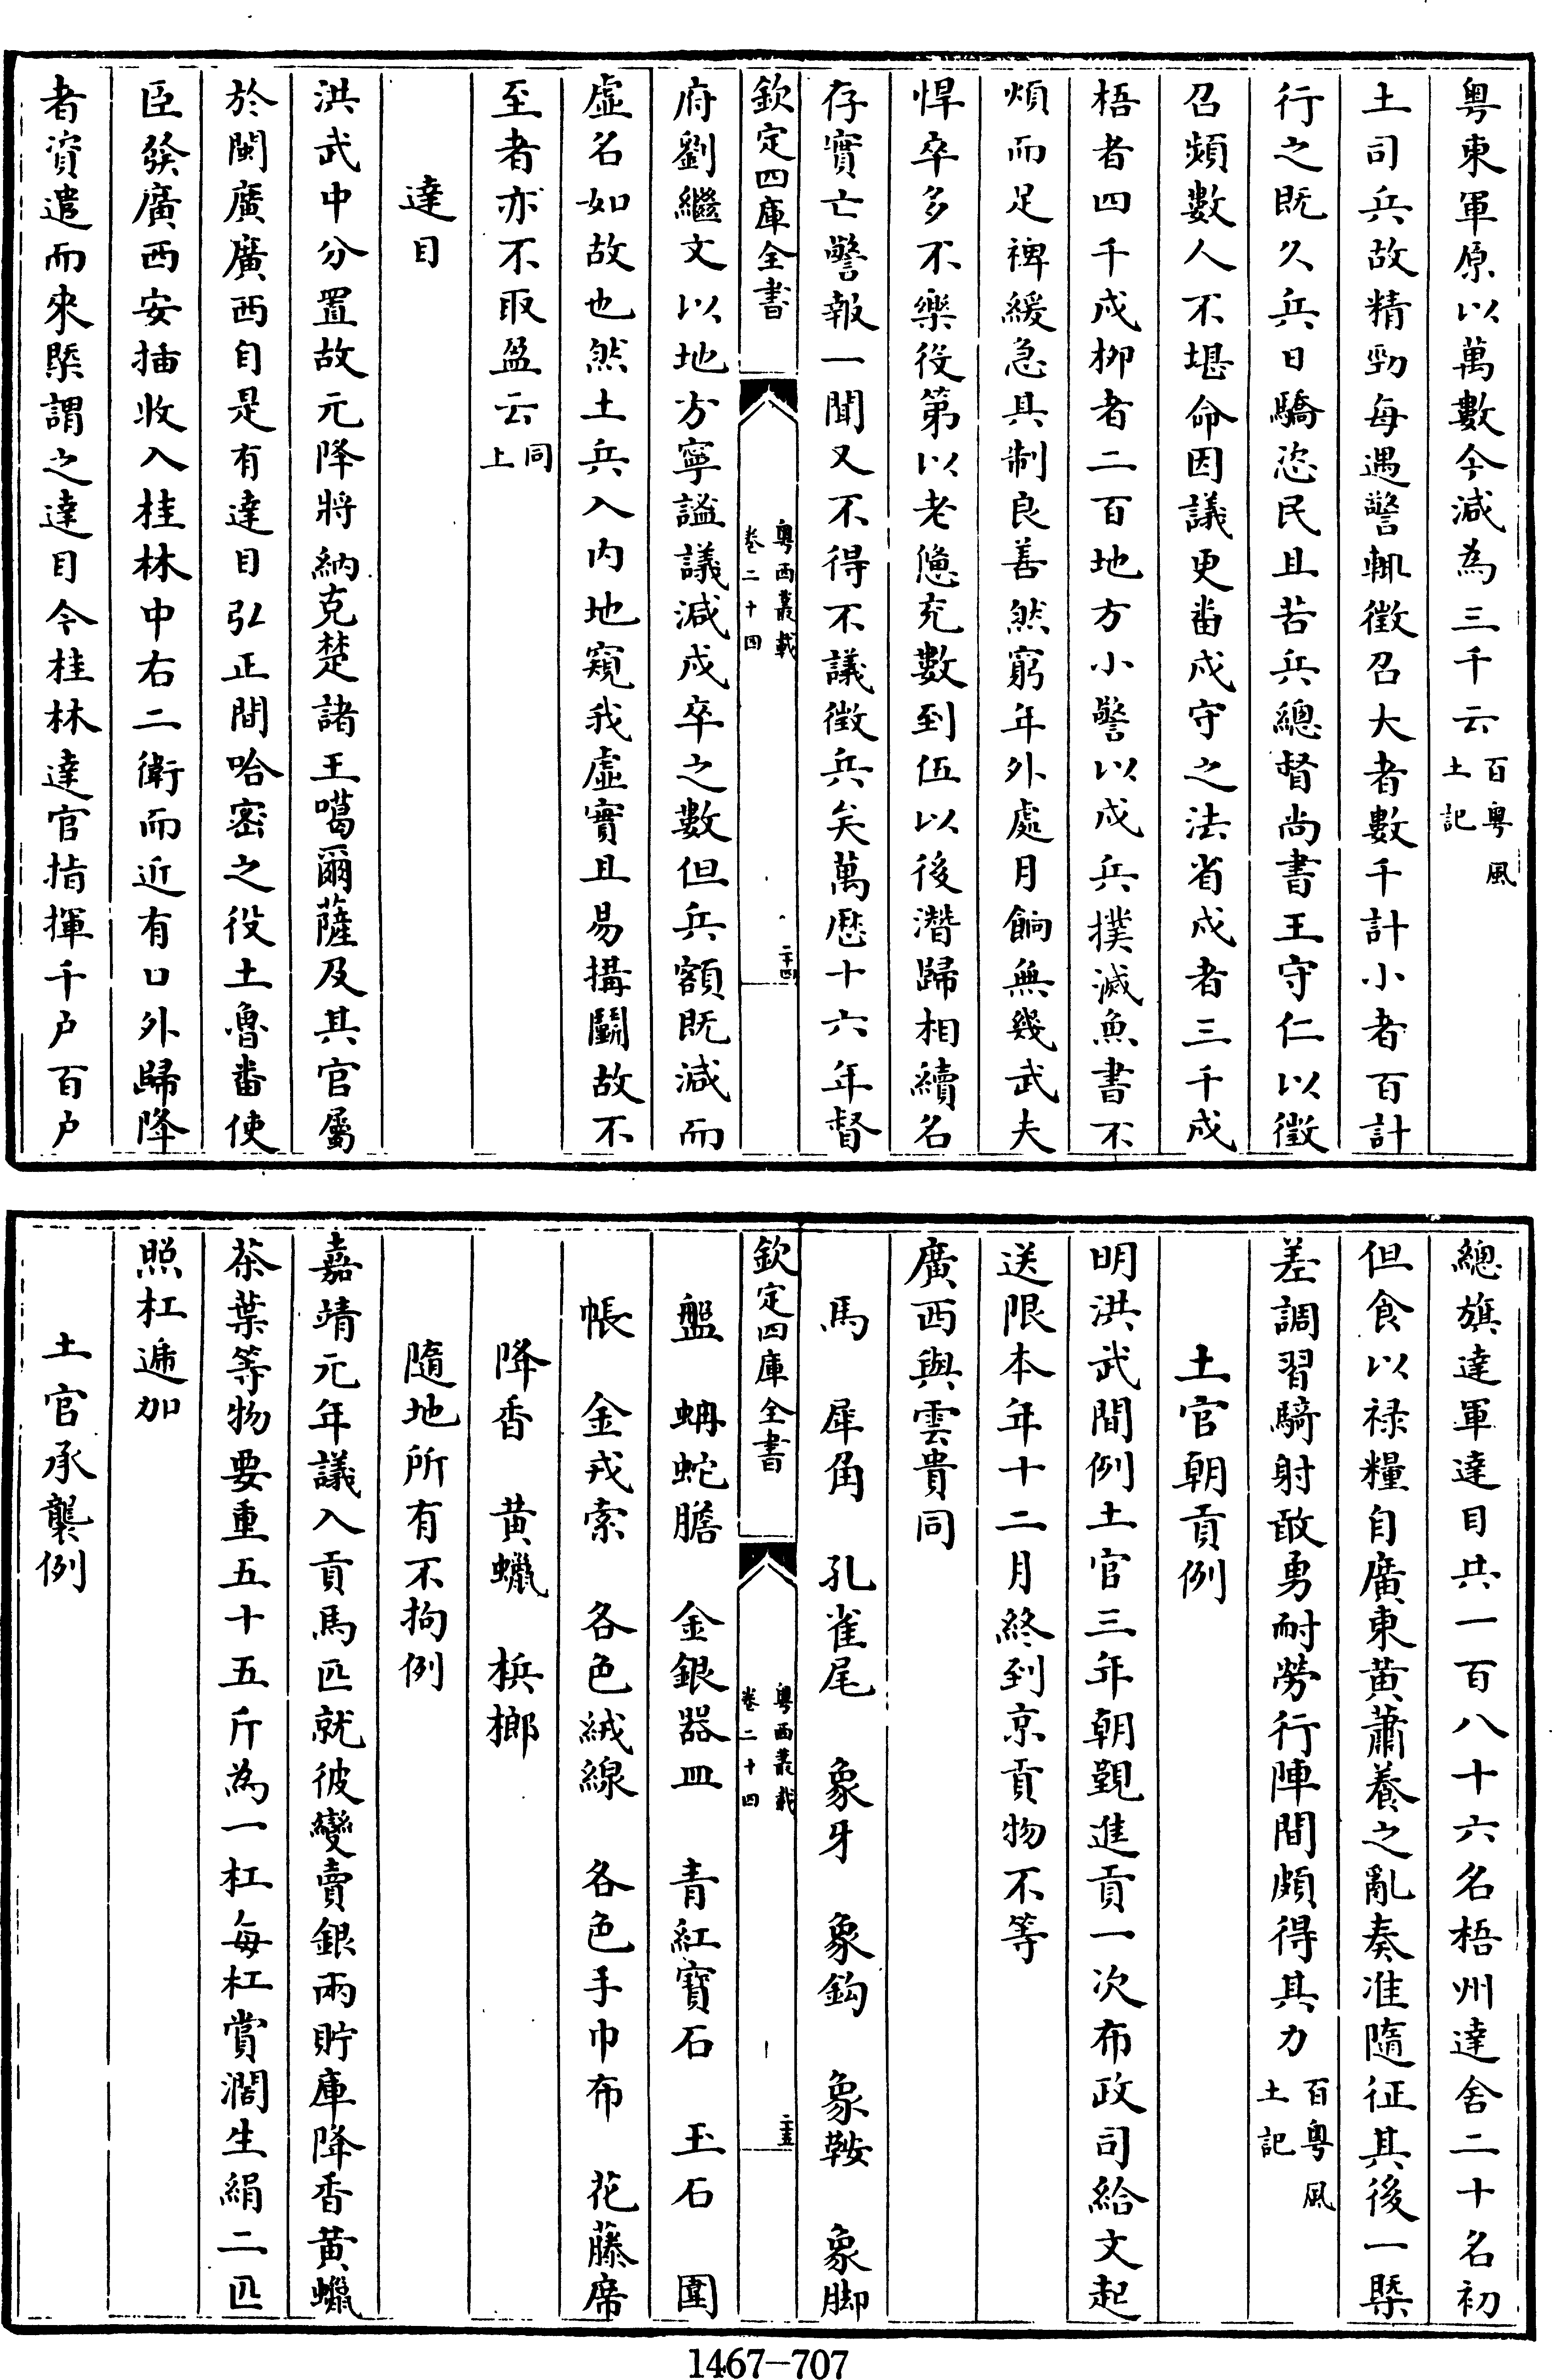 粤東軍原以萬數今減為三千云百粤風土記
土司兵故精勁每遇警輒徵召大者數千計小者百計
行之既久兵日驕恣民且苦兵總督尚書王守仁以徵
召頻數人不堪命因議更畨戍守之法省戍者三千戍
梧者四千戍栁者二百地方小警以戍兵撲滅魚書不
煩而足裨緩急具制良善然窮年外處月餉無幾武夫
悍卒多不樂役第以老憊充數到伍以後潛歸相續名
存實亡警報一聞又不得不議徵兵矣萬厯十六年督
欽定四庫全書
粤西叢載
卷二十四
二十四
府劉繼文以地方寧謐議減戍卒之數但兵額既減而
虛名如故也然土兵入内地窺我虛實且易搆鬭故不
至者亦不取盈云同上
達目
洪武中分置故元降將納克楚諸王噶爾薩及其官屬
於閩廣廣西自是有達目弘正間哈密之役土魯畨使
臣發廣西安插收入桂林中右二衛而近有口外歸降
者資遣而來槩謂之達目今桂林達官指揮千户百户
總旗達軍達目共一百八十六名梧州達舍二十名初
但食以禄糧自廣東黄蕭養之亂奏准隨征其後一槩
差調習騎射敢勇耐勞行陣間頗得其力百粤風土記
土官朝貢例
明洪武間例土官三年朝覲進貢一次布政司給文起
送限本年十二月終到京貢物不等
廣西與雲貴同
馬　犀角　孔雀尾　象牙　象鈎　象鞍　象脚
欽定四庫全書
粤西叢載
卷二十四
二十五
盤　蚺蛇膽　金銀器皿　青紅寶石　玉石　圍
帳　金戎索　各色絨線　各色手巾布　花藤席
降香　黄蠟　梹榔
隨地所有不拘例
嘉靖元年議入貢馬匹就彼變賣銀兩貯庫降香黄蠟
茶葉等物要重五十五斤為一杠每杠賞濶生絹二匹
照杠遞加
土官承襲例
1467-707